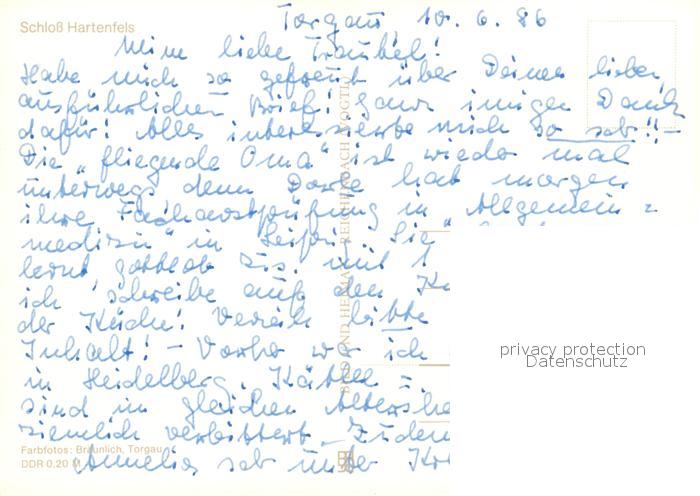 Schloß Hartenfels
Torgau, 10. 6. 86
Meine liebe Traudel!
Habe mich so gefreut über Deinen lieben,
ausführlichen Brief! Ganz innigen Dank
dafür! Alles interessierte mich so sehr!! –
Die „fliegende Oma" ist wieder mal
unterwegs denn Dorle hat morgen
ihre Facharztprüfung in „Allgemein=
medizin" in Leipzig. Sie
lernt gottlob z.Z. mit
ich schreibe auf den
der Küche! Verzeih bitte
Inhalt! – Vorher war ich
in Heidelberg. Käthe =
sind im gleichen
ziemlich verbittert –
Annelies sehr unter
BILD UND HEIMAT REICHENBACH (VOGTL)
Farbfotos: Bräunlich, Torgau
DDR 0.20 M
privacy protection
Datenschutz